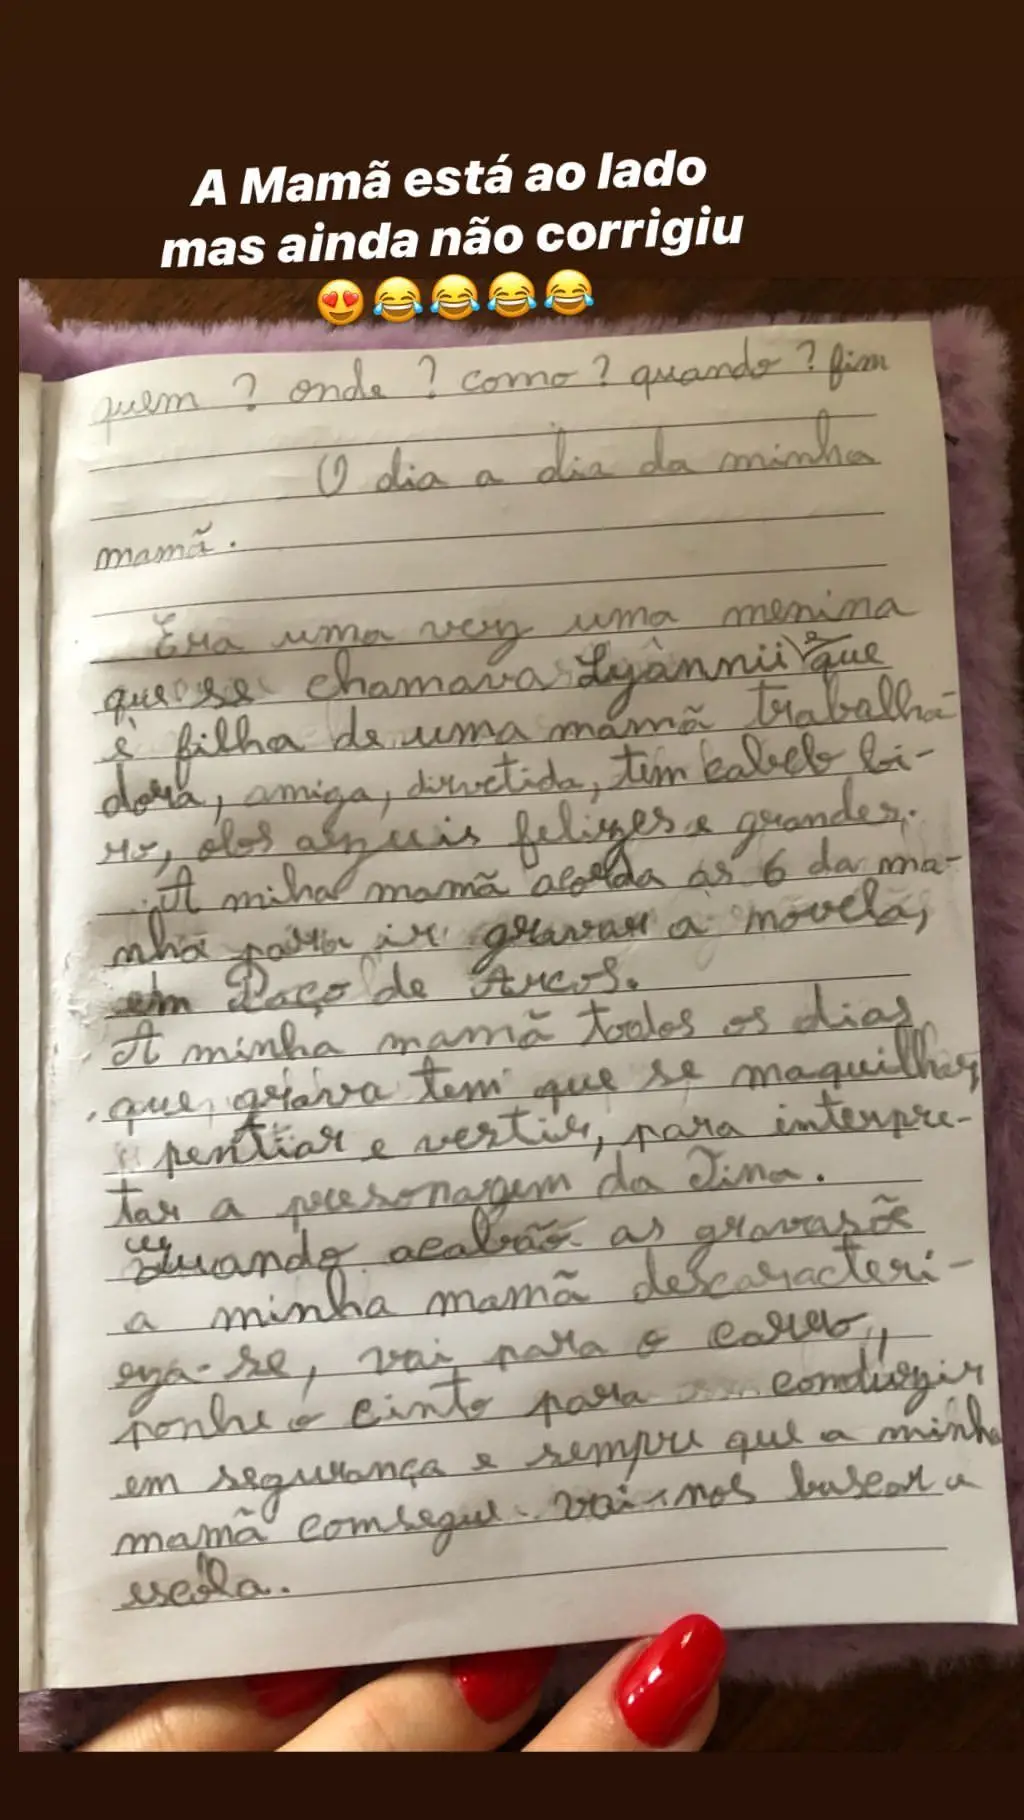 A Mamã está ao lado
mas ainda não corrigiu
😍😂😂😂😂
quem ? onde ? como ? quando ? fim
O dia a dia da minha
mamã.
Era uma vez uma menina
que se chamava Lyânnii e que
é filha de uma mamã trabalha-
dora, amiga, divretida, tem cabelo loi-
ro, olos azuis felizes e grandes.
A miha mamã acorda as 6 da ma-
nhã para ir gravar a novela,
em Paço de Arcos.
A minha mamã todos os dias
que grava tem que se maquilhar,
pentiar e vestir, para interpre-
tar a presonagem da Tina.
Quando acabão as gravasõe
a minha mamã descaracteri-
za-se, vai para o carro,
ponhe o cinto para conduzir
em segurança e sempre que a minha
mamã consegue vai-nos buscar a
escola.